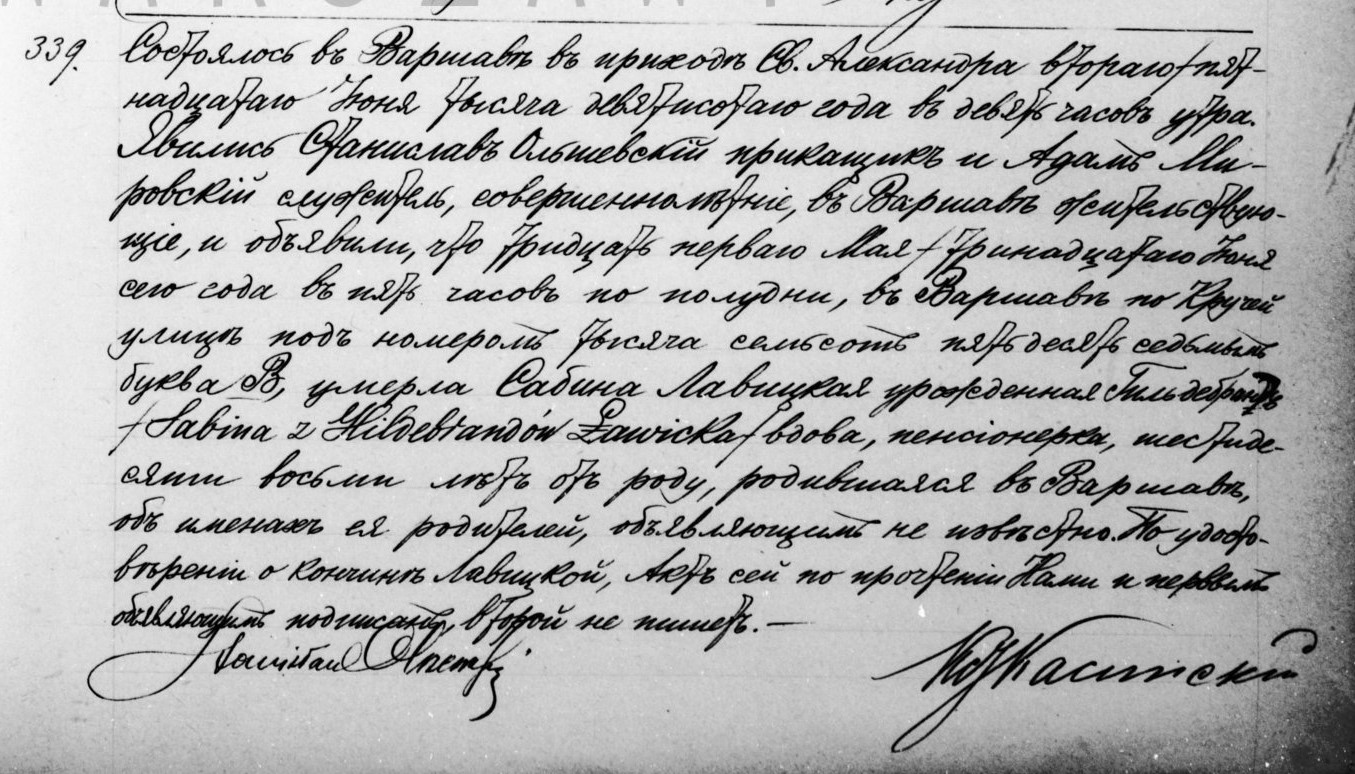 339. Состоялось въ Варшавѣ въ приходѣ Св. Александра втораго/пят-
надцатаго Іюня тысяча девятисотаго года въ девять часовъ утра.
Явились Станиславъ Ольшевскій прикащикъ и Адамъ Ми-
ровскій служитель, совершеннолѣтніе, въ Варшавѣ жительствую-
щіе, и объявили, что тридцать перваго Мая/тринадцатаго Іюня
сего года въ пять часовъ по полудни, въ Варшавѣ по Кручей
улицѣ подъ номеромъ тысяча семьсотъ пятьдесятъ седьмымъ
буква В, умерла Сабина Лавицкая урожденная Гильдебрандъ
/Sabina z Hildebrandów Ławicka/ вдова, пенсіонерка, шестиде-
сяти восьми лѣтъ отъ роду, родившаяся въ Варшавѣ,
объ именахъ ея родителей, объявляющимъ не извѣстно. По удосто-
вѣреніи о кончинѣ Лавицкой, Актъ сей по прочтеніи Нами и первымъ
объявляющимъ подписанъ, второй не пишетъ. —
Stanisław